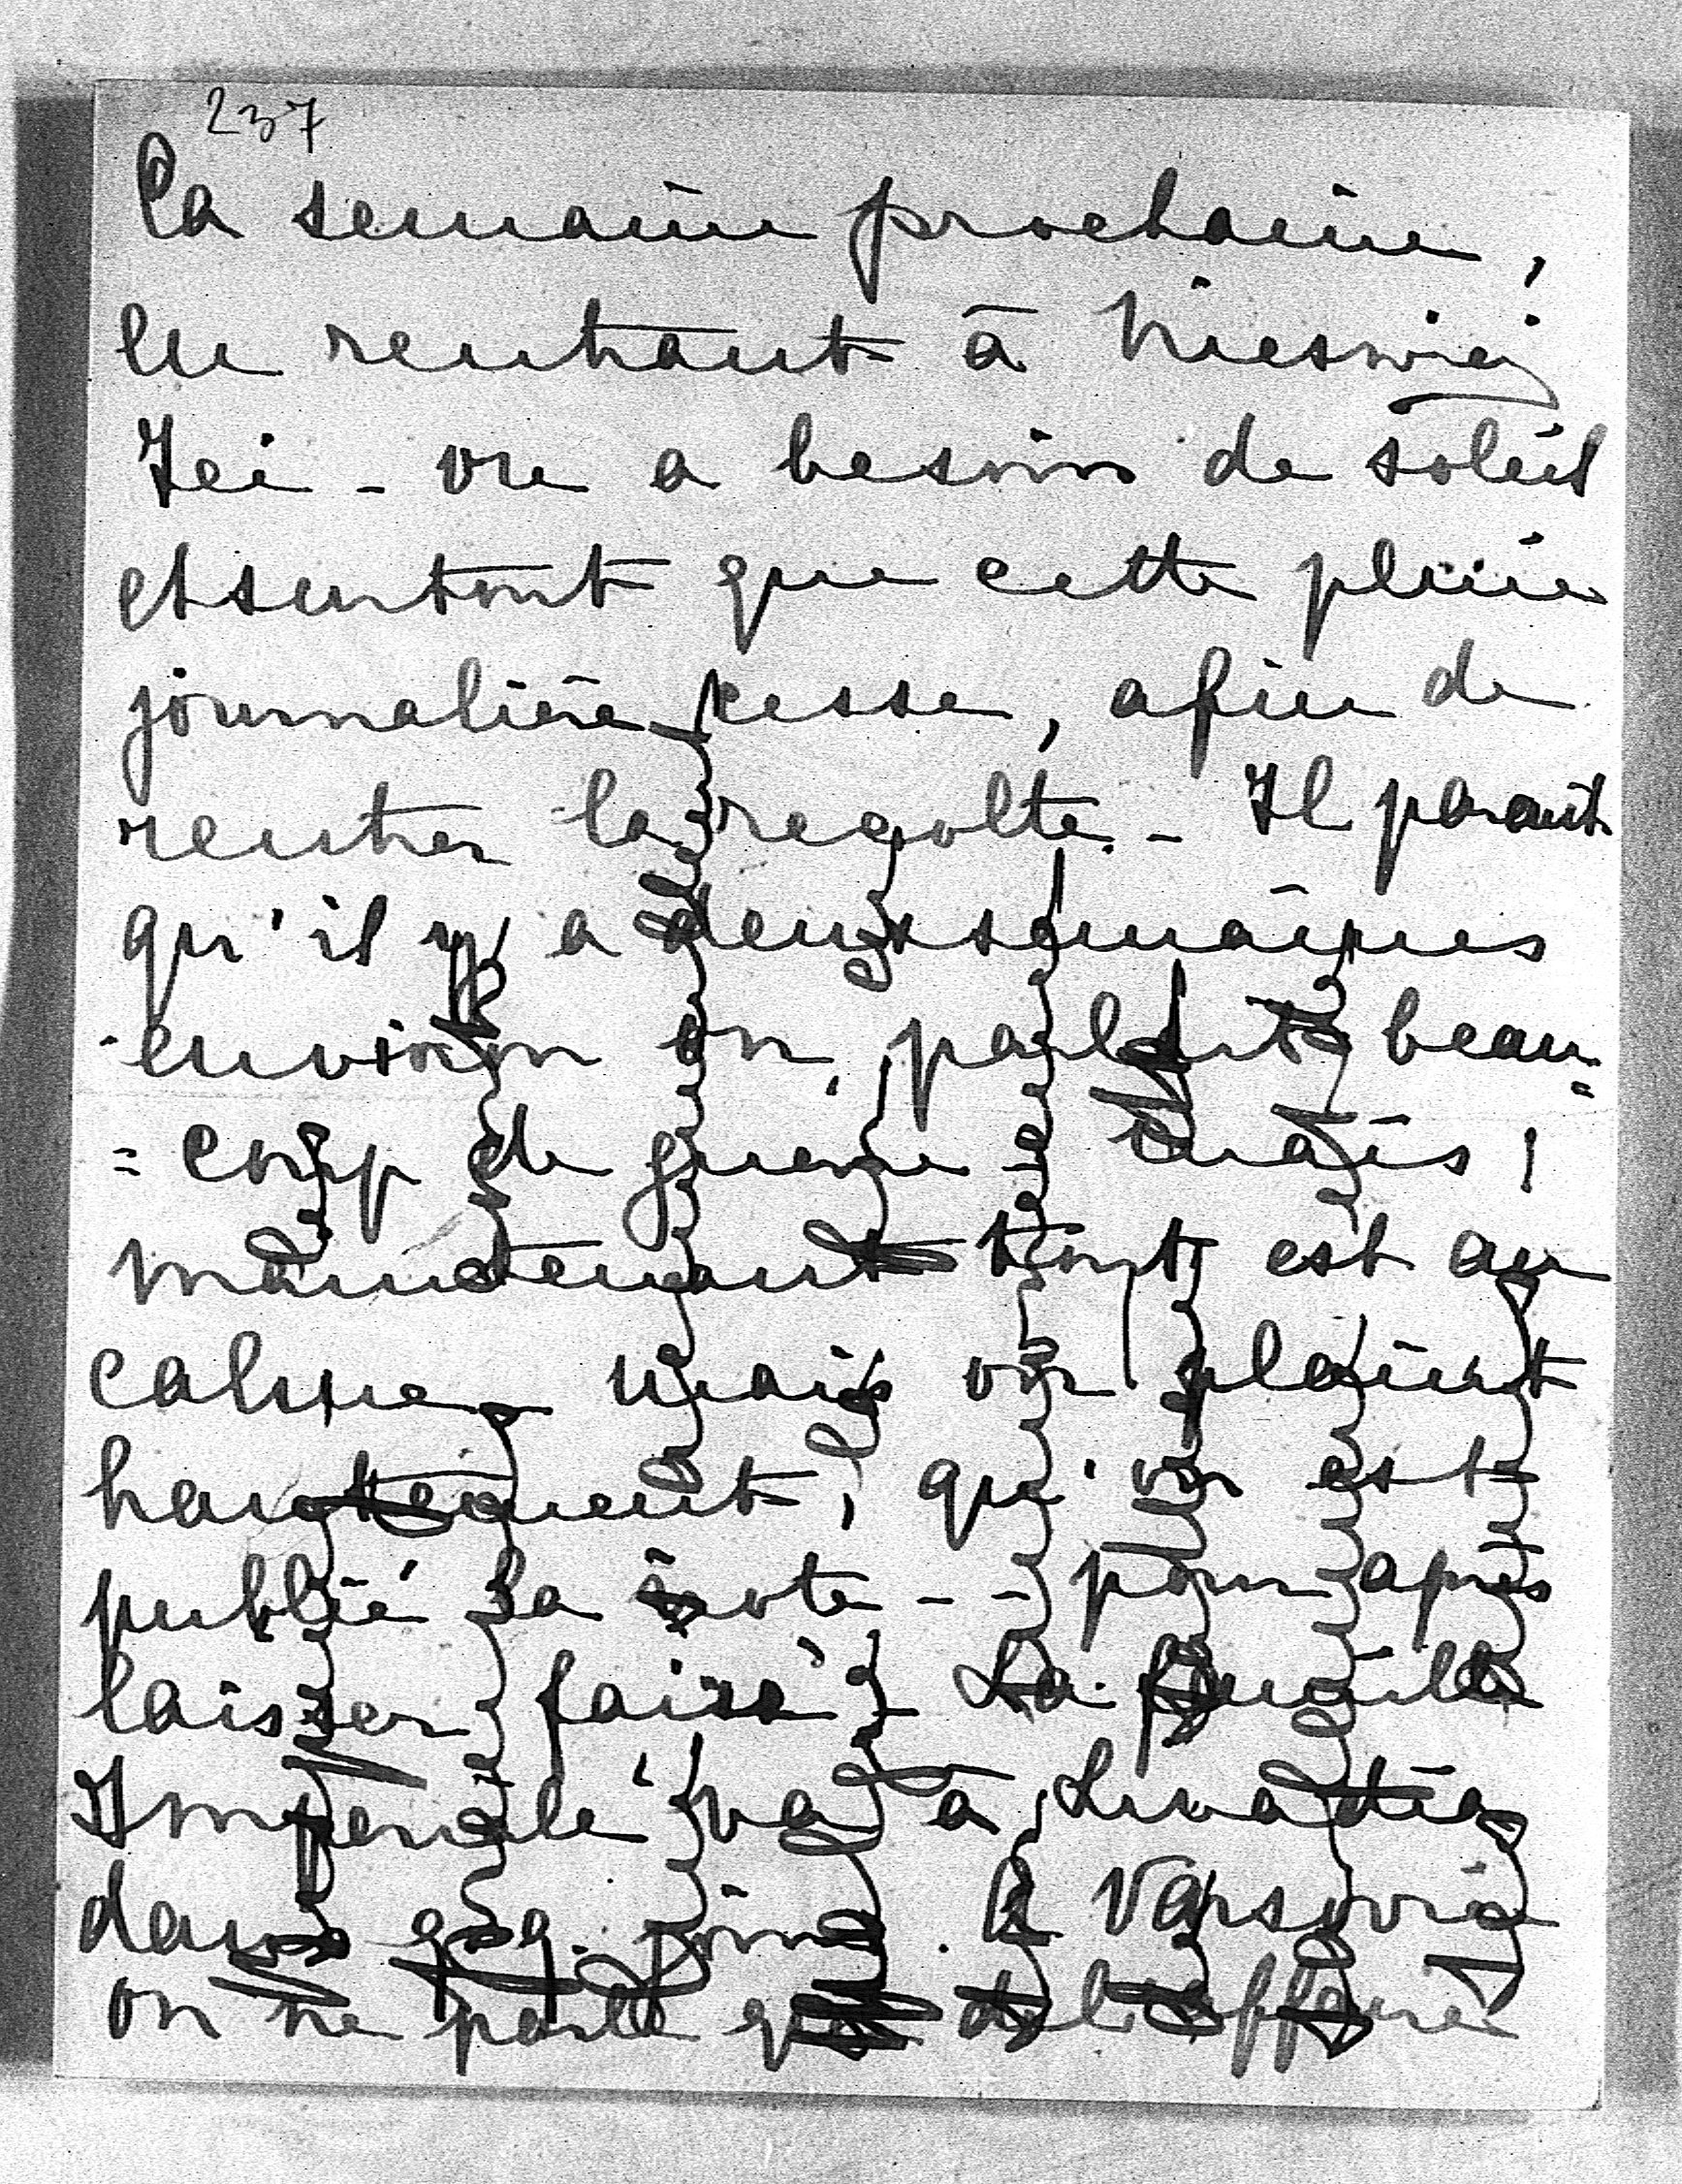 237
La semaine prochaine,
en rentrant à Nieswiej
Ici - on a besoin de soleil
et surtout que cette pluie
journalière cesse, afin de
rentrer la recolte. - Il parait
qu'il y a deux semaines
environ on parlait beau=
=coup de guerre - mais,
maintenant tout est au
calme - mais on plaint
hautement, qu'on est
publié la note - - pour après
laisser faire - La famille
Imperiale va à Livadia
dans qq. jours. A Varsovie
on ne parle que de l'affaire